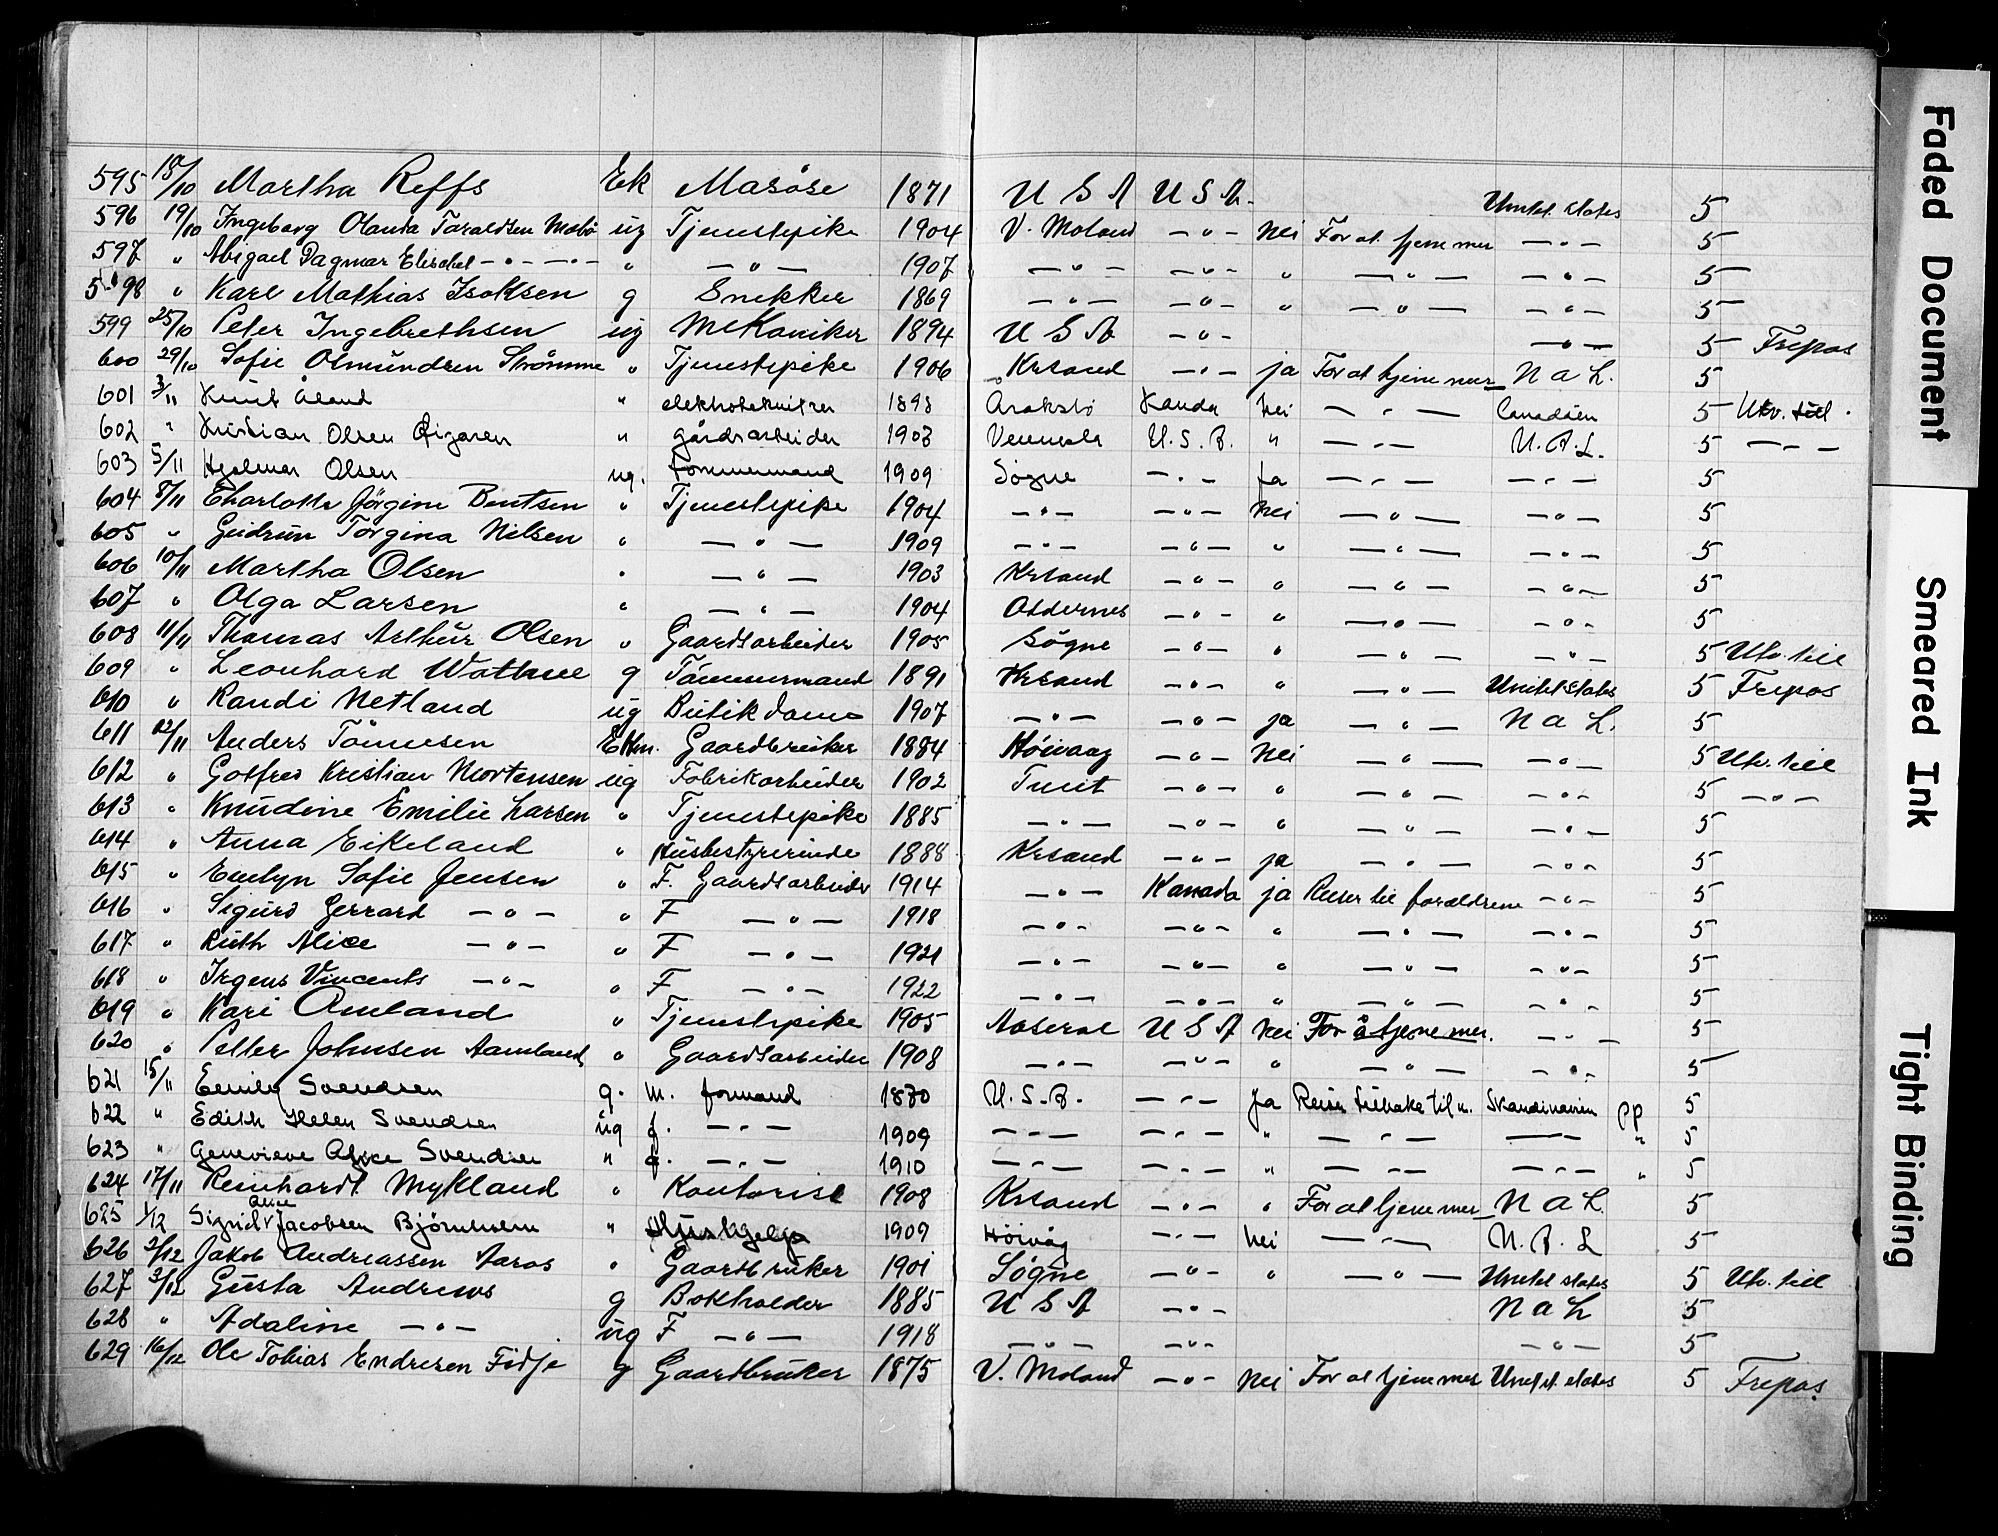 595 18/10 Martha Reffs Ek Masöse 1871 U S A U S A. Unitet. states 5
596 19/10 Ingeborg Olanda Taraldsen Mæbö ug Tjenestepike 1904 V. Moland — " — nei For at tjene mer — " — 5
597 " Abigael Dagmar Elischel — " — — " — " — " — 1907 — " — — " — " — " — — " — 5
598 " Karl Mathias Isaksen g Snekker 1869 — " — — " — " — " — — " — 5
599 25/10 Peter Ingebrethsen ug Mekaniker 1894 U S A — " — — " — 5 Frepas
600 29/10 Sofie Osmundsen Strømme " Tjenestepike 1906 Krsand — " — ja For at tjene mer N a L. 5
601 3/11 Knut Åland " elektrotekniker 1898 Arakstö Kanda nei — " — Canadien 5 Utv. till.
602 " Kristian Olsen " gårdsarbeider 1903 Vennesla U.S.A. " — " — N.A.L. 5 — " —
603 5/11 Hjalmar Olsen ug. Tömmermand 1909 Søgne — " — Ja — " — — " — 5
604 8/11 Charlotte Jörgine Bentsen " Tjenestepike 1904 — " — — " — nei — " — — " — 5
605 " Gudrun Torgina Nilsen " — " — 1909 — " — — " — " — " — — " — 5
606 10/11 Martha Olsen " — " — 1903 Krsand — " — " — " — — " — 5
607 " Olga Larsen " — " — 1904 Oddernes — " — " — " — — " — 5
608 11/11 Thomas Arthur Olsen " Gaardsarbeider 1905 Søgne — " — " — " — — " — 5 Utv. till
609 " Leonhard Wathne g Tömmermand 1891 Krsand — " — " — " — Unitet states 5 Frepas
610 " Randi Netland ug Butikdame 1907 — " — — " — ja — " — N a L. 5
611 12/11 Anders Tönnesen Ekm. Gaardbruker 1884 Höivaag — " — nei — " — — " — 5 Utv. till
612 " Gotfred Kristian Mortensen ug Fabrikarbeider 1902 Tveit — " — " — " — — " — 5 — " —
613 " Knudine Emilie Larsen " Tjenestepike 1885 — " — — " — " — " — — " — 5
614 " Anna Eikeland " Husbestyrerinde 1888 Krsand — " — ja — " — — " — 5
615 " Evelyn Sofie Jensen " F. Gaardsarbeider 1914 — " — Kanada ja Reiser til foreldrene — " — 5
616 " Sigurd Gerrard — " — " F — " — 1918 — " — — " — " — " — — " — 5
617 " Ruth Alice — " — " F — " — 1921 — " — — " — " — " — — " — 5
618 " Irgens Vincents — " — " F — " — 1922 — " — — " — " — " — — " — 5
619 " Kari Omland " Tjenestepike 1905 Aaseral U S A nei For å tjene mer. — " — 5
620 " Petter Johnsen Aamland " Gaardsarbeider 1908 — " — — " — " — " — — " — 5
621 15/11 Emily Svendsen g. m. formand 1870 U.S.A. — " — Ja Reise tilbake til m. Skandinavien pp 5
622 " Edith Helen Svendsen ug f. — " — 1909 — " — — " — " — " — —— " 5
623 " Genevieve Alice Svendsen " f. — " — 1910 — " — — " — " — " — — " — " 5
624 17/11 Reinhardt Mykland " Kontorist 1908 Krsand — " — " For at tjene mer N a L. 5
625 1/12 Sigrid Alice Jacobsen Björnholm " Hushjelp 1909 Höivåg — " — nei — " — N.A.L 5
626 2/12 Jakob Andreassen Aaros " Gaardbruker 1901 Søgne — " — " — " — Unitet states 5 Utv. till
627 3/12 Gusta Andrews g Bokholder 1885 U S A — " — N a L 5
628 " Adaline — " — ug F — " — 1918 — " — — " — — " — 5
629 16/12 Ole Tobias Endresen Fidje g Gaardbruker 1875 V. Moland — " — nei For at tjene mer Unitet. states 5 Frepas.
Faded Document
Smeared Ink
Tight Binding